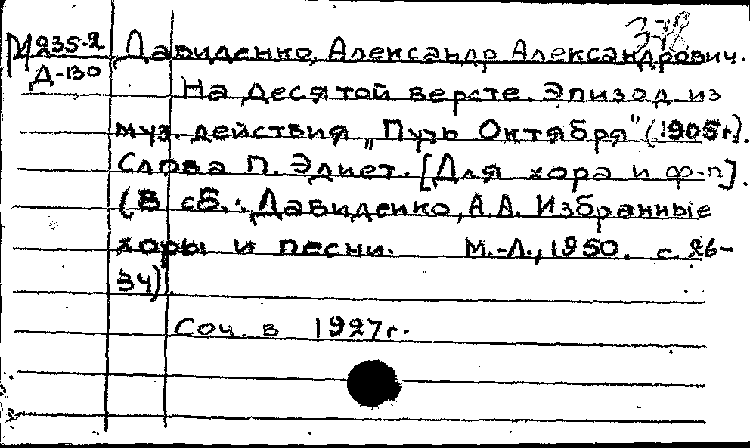 3-78
М235-2 Давиденко, Александр Александрович.
Д-130
На десятой версте. Эпизод из
муз. действия „Путь Октября" (1905г.).
Слова П. Эдиет. [Для хора и ф-п].
(В сб.: Давиденко, А.А. Избранные
хоры и песни. М.-Л., 1950. с. 26-
34)
Соч. в 1927г.